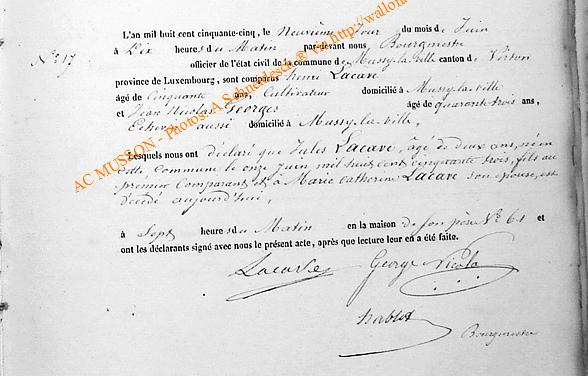 N.° 17
L'an mil huit cent cinquante-cinq, le Neuvième Jour du mois de Juin
à Dix heures du Matin par-devant nous Bourgmestre
officier de l'état civil de la commune de Mussy-la-ville canton de Virton
province de Luxembourg, sont comparus henri Lacave
âgé de Cinquante ans, Cultivateur domicilié à Mussy-la-ville
et Jean Nicolas Georges âgé de quarante trois ans,
Echevin aussi domicilié à Mussy-la-ville,
Lesquels nous ont déclaré que Jules Lacave, âgé de deux ans, né en
cette Commune le onze juin mil huit cent cinquante trois, fils au
premier Comparant et à Marie Catherine Lacave son épouse, est
décédé aujourd'hui,
à Sept heures du Matin en la maison de son père N.° 61 et
ont les déclarants signé avec nous le présent acte, après que lecture leur en a été faite.
George Nicola
Bourgmestre
AC MUSSON - Photos: A Schneidesch @ via http://wallo